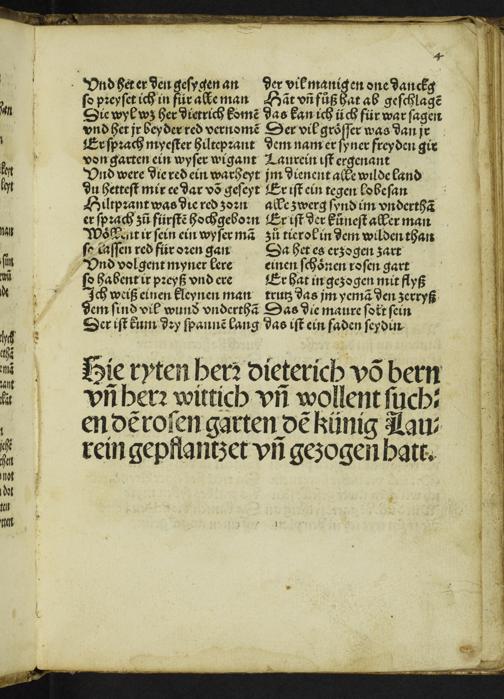 4
Vnd het er den gesygen an
so preyset ich in für alle man
Die wyl wz her dietrich komē
vnd het jr beyder red vernomē
Er sprach myester hilteprant
von garten ein wyser wigant
Vnd were die red ein warheyt
du hettest mir ee dar vō geseyt
Hiltprant was die red zorn
er sprach zů fürstē hochgeborn
Wöllent ir sein ein wyser mā
so lassen red für oren gan
Vnd volgent myner lere
so habent ir preyß vnd ere
Ich weiß einen kleynen man
dem sind vil wund vnderthā
Der ist kum dry spannē lang
der vil manigen one danckg
Hāt vn̄ fůß hat ab geschlagē
das kan ich ü ch für war sagen
Der vil grösser was dan jr
dem nam er syner freyden gir
Laurein ist er genant
jm dienent alle wilde land
Er ist ein tegen lobesan
alle zwerg synd im vnderthā
Er ist der künest aller man
zů tierol in dem wilden than
Da het es erzogen zart
einen schönen rosen gart
Er hat in gezogen mit flyß
trutz das jm yemā den zerryß
Das die maure solt sein
das ist ein faden seydin
Hie ryten herꝛ dieterich vō bern
vn̄ herꝛ wittich vn̄ wollent such⸗
en dē rosen garten dē künig Lau⸗
rein gepflantzet vn̄ gezogen hatt.